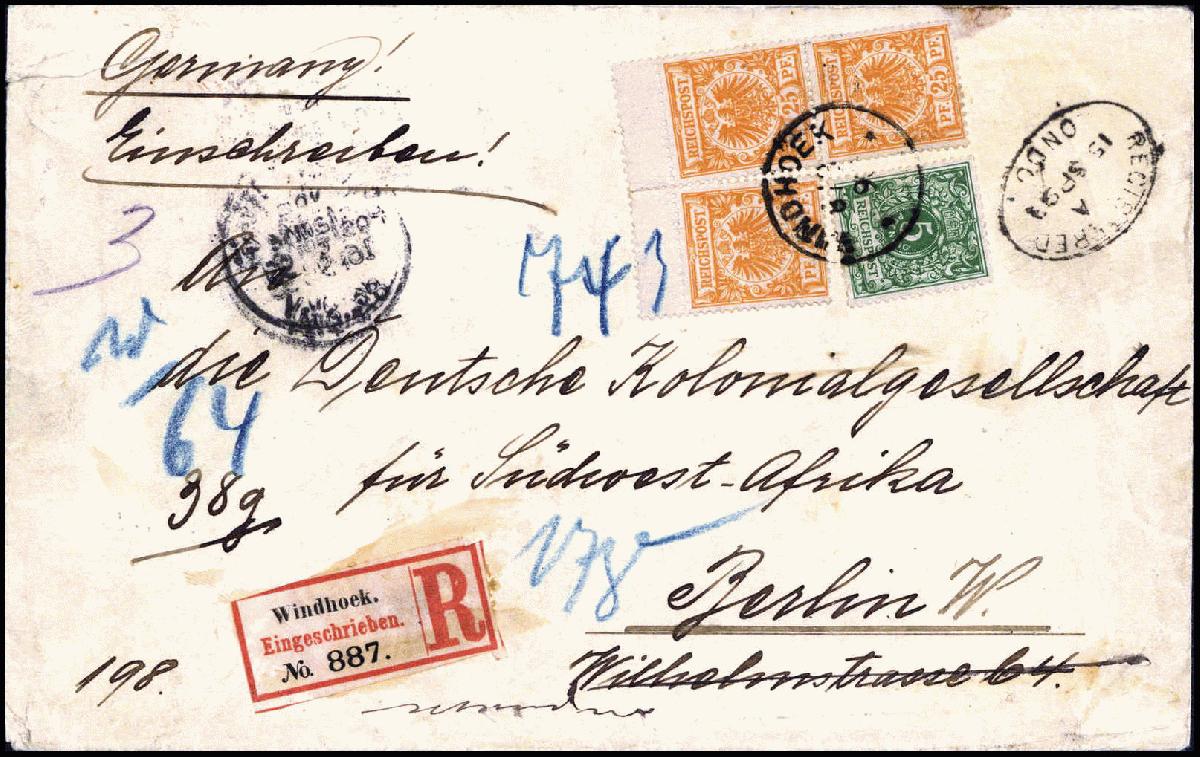 Germany!
Einschreiben!
REICHSPOST 25 PF
REICHSPOST 25 PF PF
REICHSPOST PF
REICHSPOST 5
WINDHOEK
REGISTERED
15 SP 9
A
3
743
An
die Deutsche Kolonialgesellschaft
64
für Südwest-Afrika
38g
Berlin W.
Wilhelmstrasse 64.
Windhoek.
Eingeschrieben.
No. 887.
R
198.